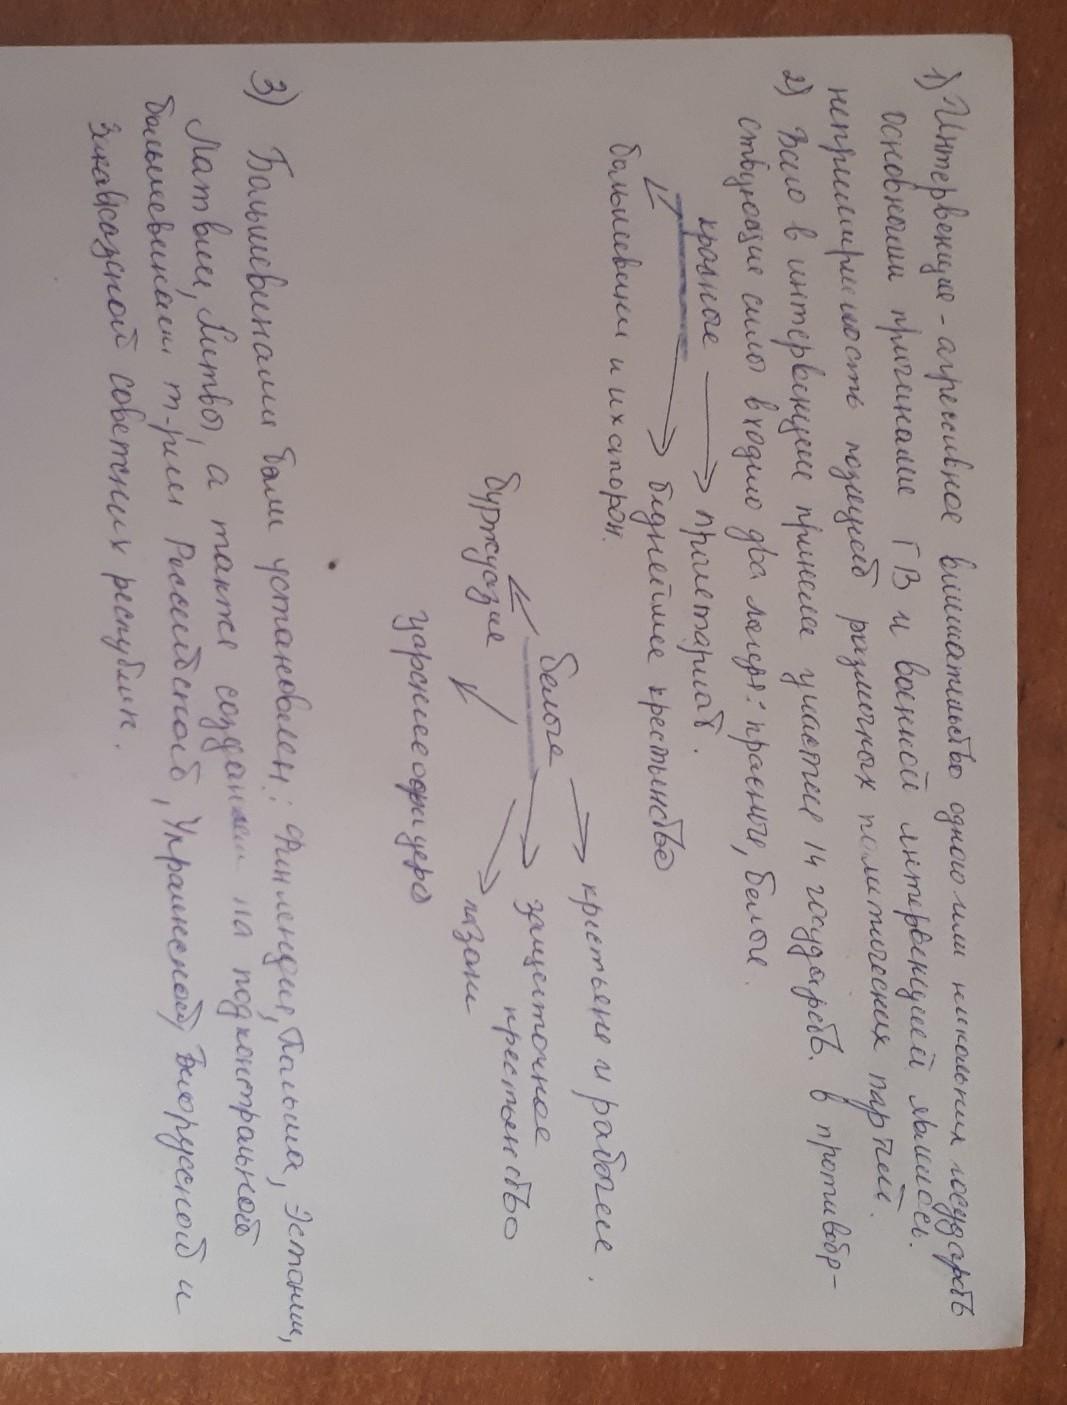 1) Интервенция - агрессивное вмешательство одного или нескольких государств
Основными причинами ГВ и военной интервенцией явились
непримиримость позиций различных политических партий.
2) Всего в интервенции приняли участие 14 государств. в противобр-
ствующие силы входило два лагеря: красные, белые.
красное → пролетариат.
беднейшее крестьянство
большевики и их сторон.
белое → крестьяне и рабочие.
буржуазия
зажиточное
крестьянство
казаки
царские офицеро
3) Большевиками были установлен: Финляндия, Польша, Эстонии,
Латвии, Литвы, а также создании на подконтрольной
большевикам т-рии Российской, Украинской, Белорусской и
Закавказской советских республик.